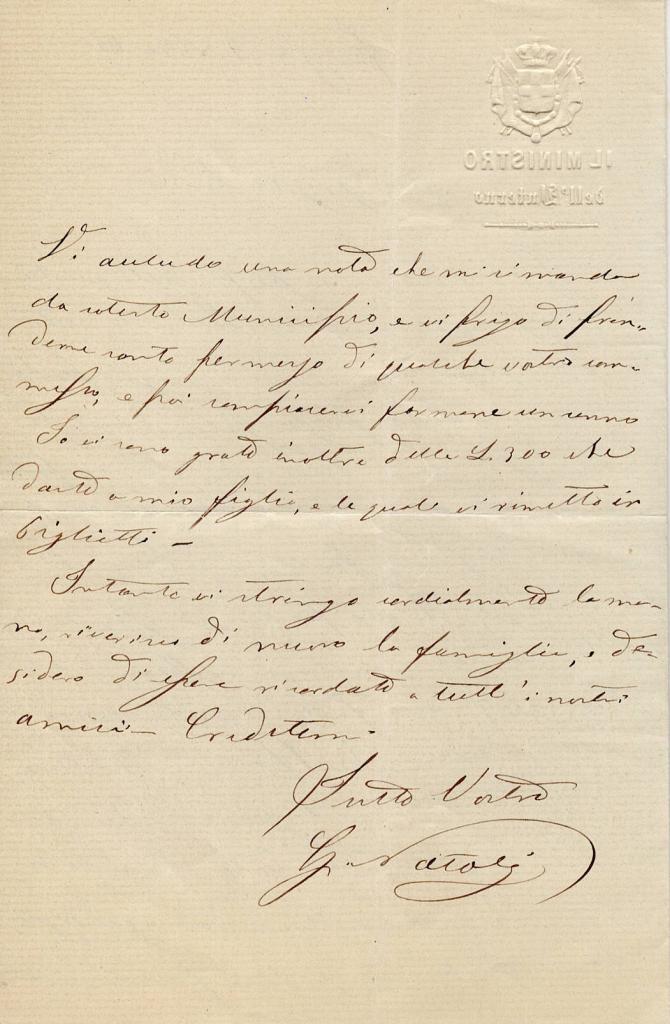 IL MINISTRO
dell'Interno
Vi accludo una nota che mi si manda
da cotesto Municipio, e vi prego di pren-
derne conto per mezzo di qualche vostro com-
messo, e poi compiacervi farmene un cenno
Io vi sono grato inoltre delle L. 300 che
daste a mio figlio, e le quali vi rimetto in
biglietti —
Intanto vi stringo cordialmente la ma-
no, riverisco di nuovo la famiglia, e de-
sidero di essere ricordato a tutt'i nostri
amici — Credetemi
Tutto Vostro
G. Natoli